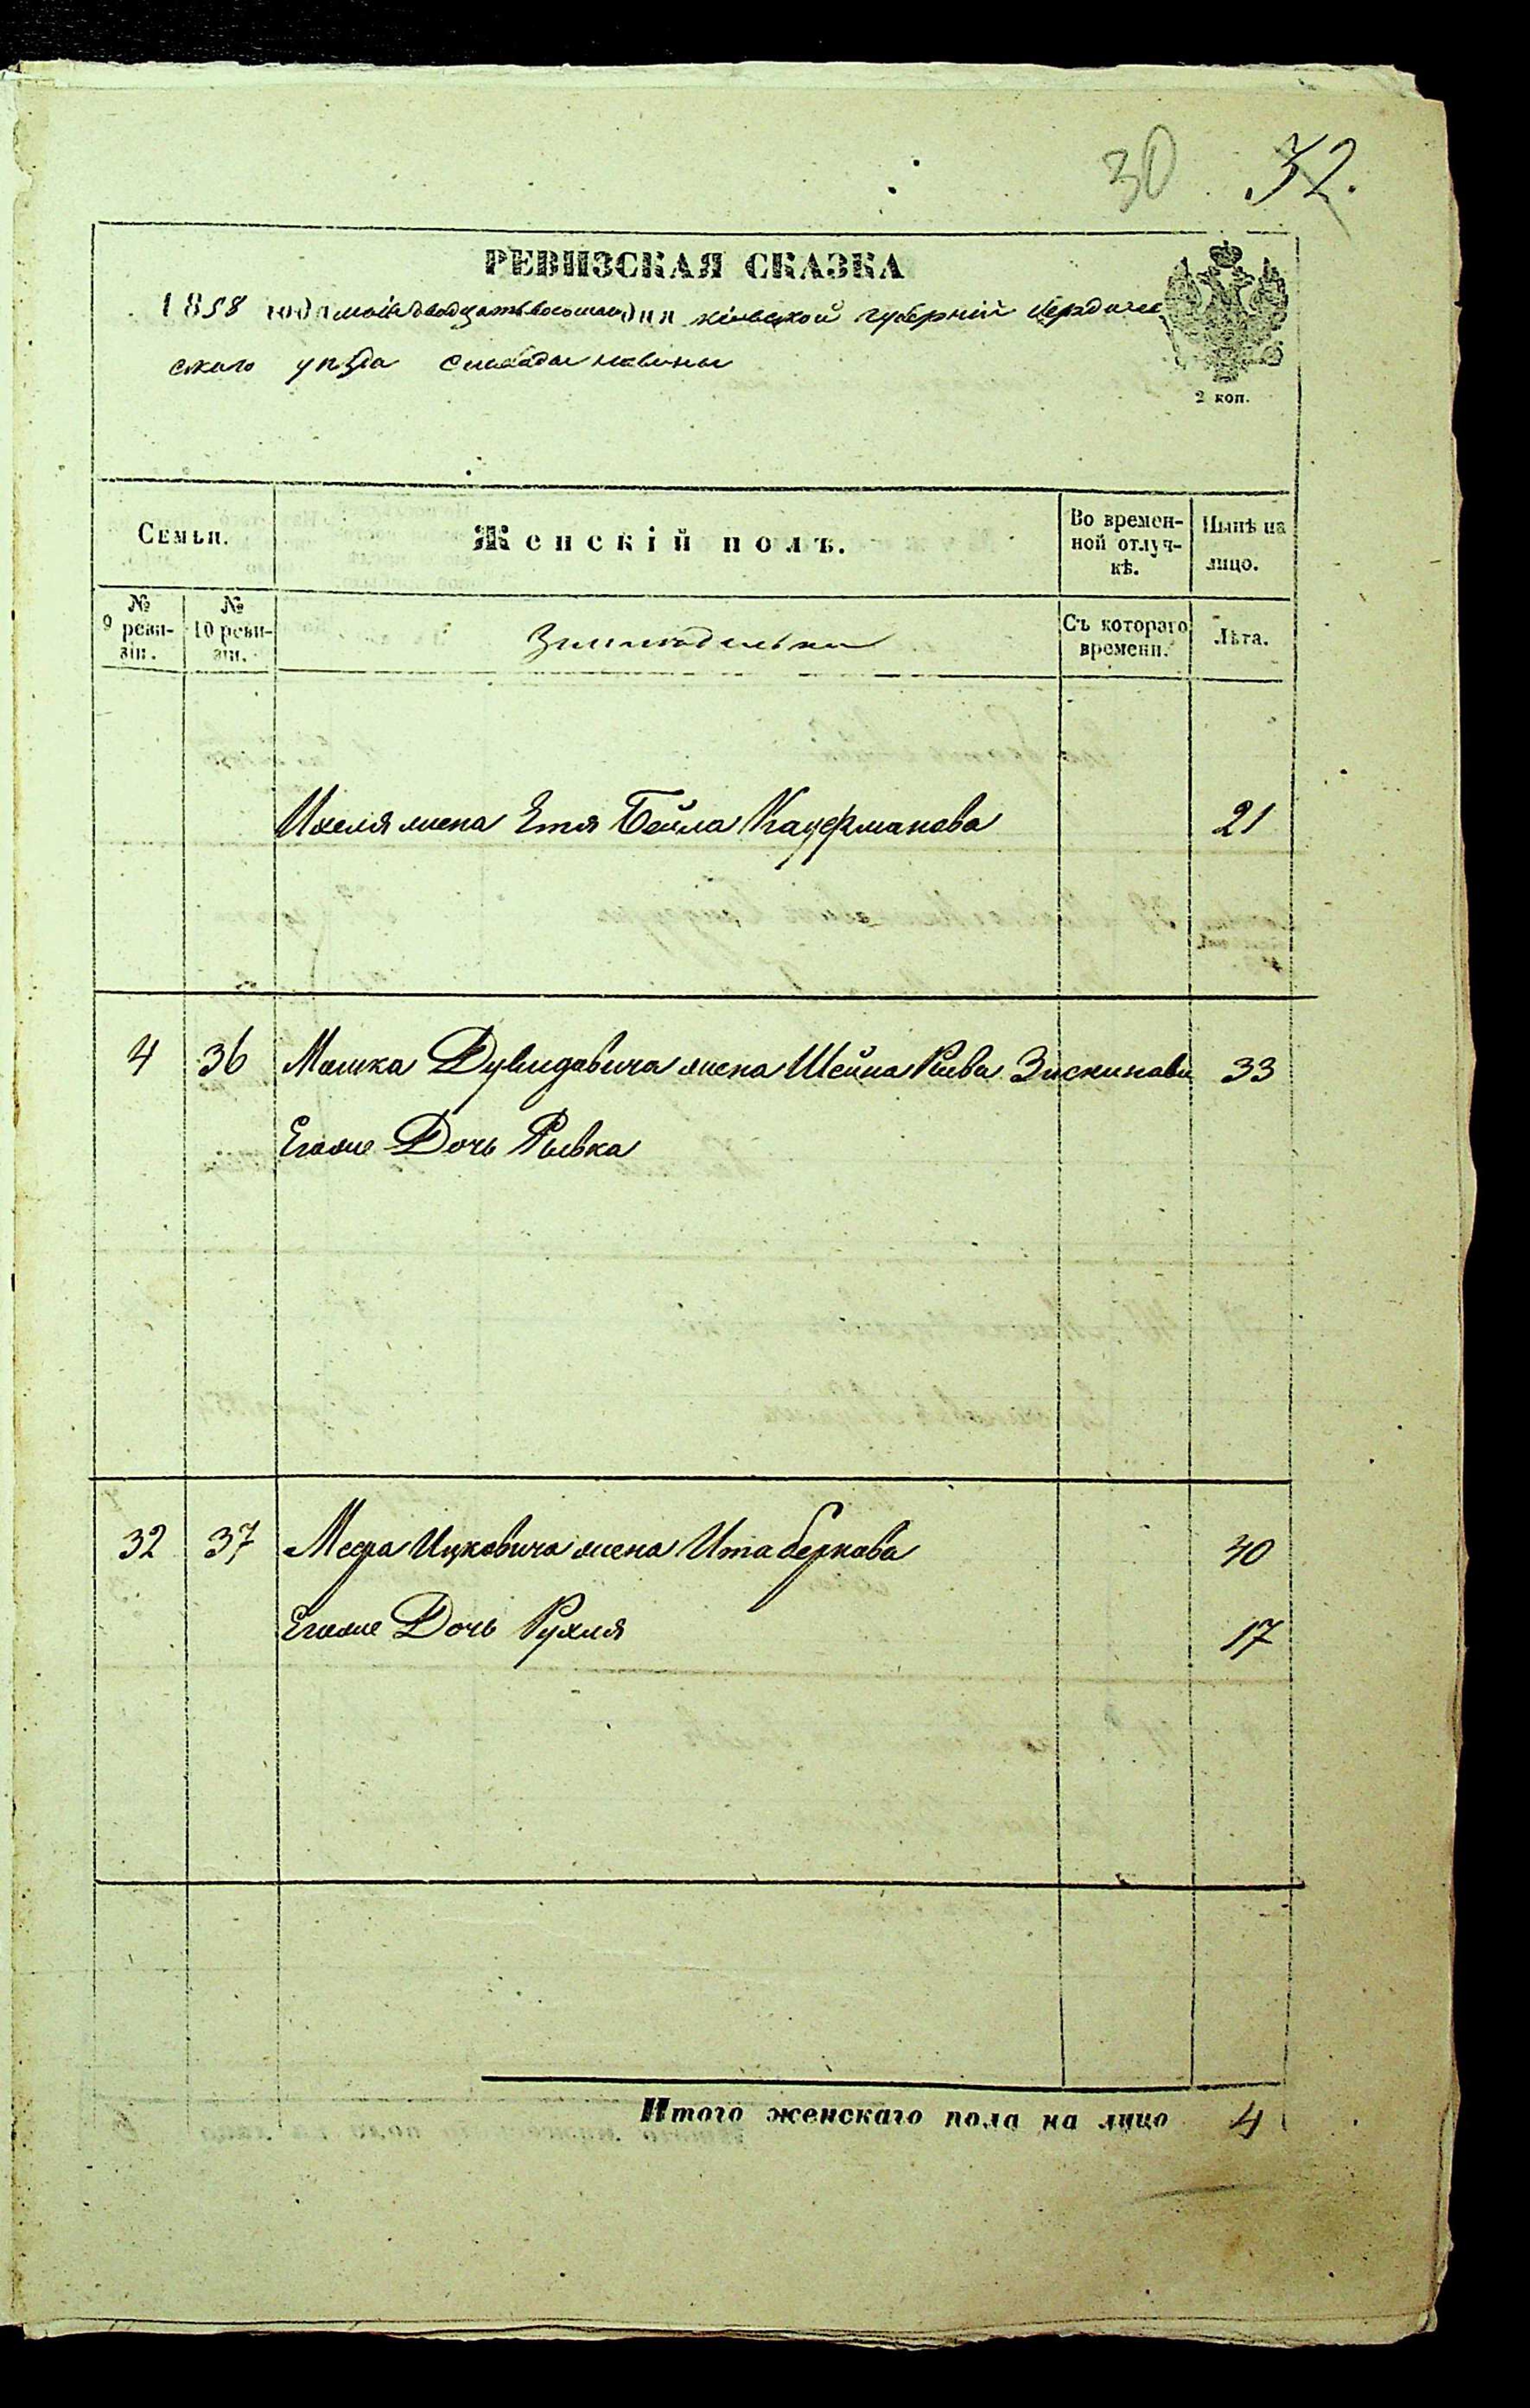 30 32.
РЕВИЗСКАЯ СКАЗКА
1858 года маія двадцать восьмаго дня кіевской губерніи бердичев
скаго уѣзда слободы
2 коп.
Семьи. Женскій полъ. Во времен-
ной отлуч-
кѣ. Нынѣ на
лицо.
№
9 реви-
зіи. №
10 реви-
зіи. Съ котораго
времени. Лѣта.
жена Етя Бейла 21
4 36 Мошка Дувидовича жена Шейна Рива Зискинова 33
Егоже Дочь Рывка
32 37 Ицковича жена Ита беркова 40
Егоже Дочь Рухля 17
Итого женскаго пола на лицо 4